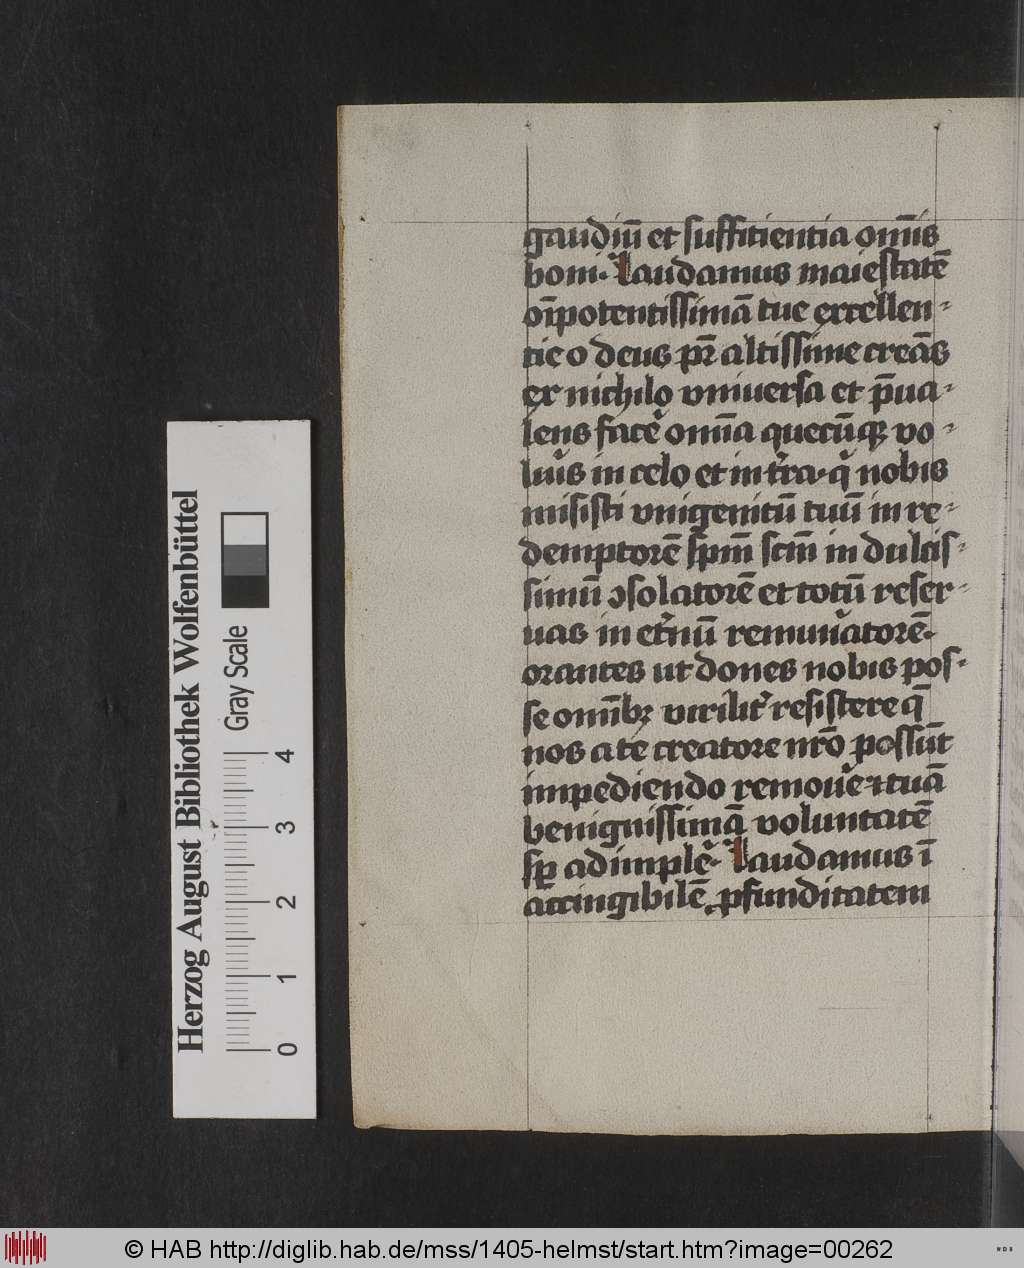 gaudiū et suffitientia om̄is
boni. Laudamus maiestatē
oīpotentissimā tue excellen-
tie o deus pr̄ altissime creās
ex nichilo vniuersa et p̄ua-
lens face᷑ om̄ia quecūqꝫ vo-
lu᷑is in celo et in t᷑ra. q᷑ nobis
misisti vnigenitū tuū in re-
demptorē sp̄m sc̄m in dulcis-
simū ꝯsolatorē et totū reser-
uas in et᷑nū remun᷑atorē.
orantes ut dones nobis pos-
se om̄ibꝫ virilit᷑ resistere q̄
nos a te creatore nr̄o possūt
impediendo remoue᷑ ⁊ tuā
benignissimā voluntatē
sꝑ adimple᷑. Laudamus ī
attingibilē ꝓfunditatem
Herzog August Bibliothek Wolfenbüttel
Gray Scale
0 1 2 3 4
© HAB http://diglib.hab.de/mss/1405-helmst/start.htm?image=00262